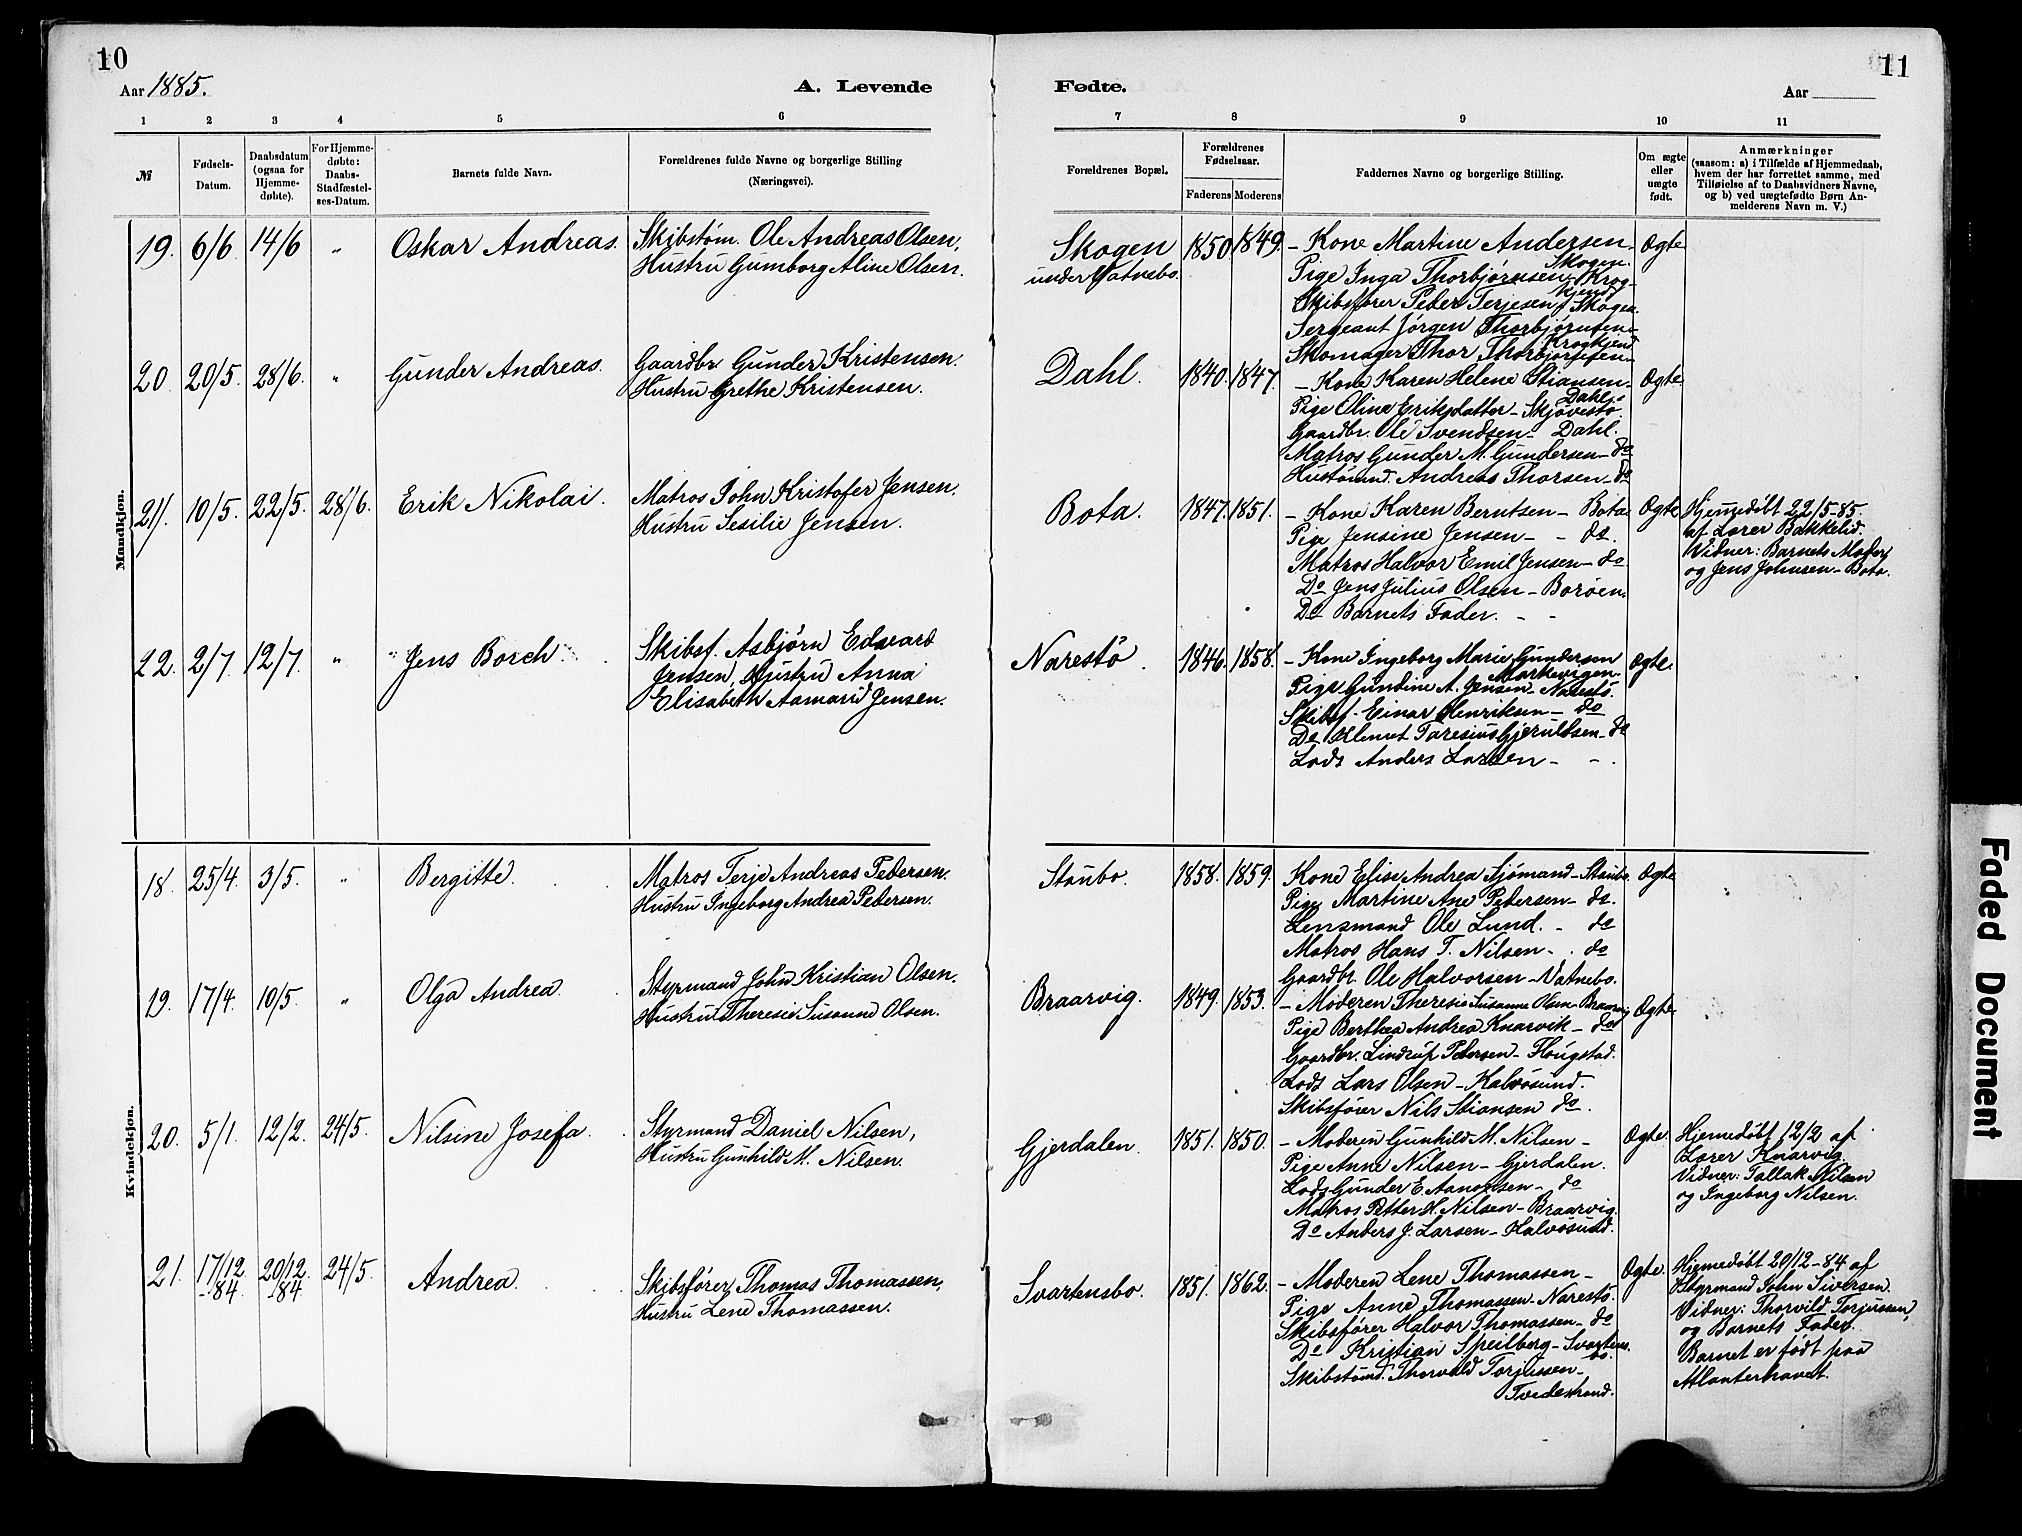 10
Aar 1885.
A. Levende
1 2 3 4 5 6
№
Fødsels-
Datum.
Daabsdatum
(ogsaa for
Hjemme-
døbte).
For Hjemme-
døbte:
Daabs-
Stadfæstel-
ses-Datum.
Barnets fulde Navn.
Forældrenes fulde Navne og borgerlige Stilling
(Næringsvei).
Mandkjøn.
19. 6/6 14/6 " Oskar Andreas.
Skibstøm. Ole Andreas Olsen,
Hustru Gumborg Aline Olsen.
20. 20/5. 28/6. " Gunder Andreas.
Gaardbr. Gunder Kristensen.
Hustru Grethe Kristensen.
21. 10/5. 22/5. 28/6. Erik Nikolai.
Matros John Kristofer Jensen.
Hustru Sesilie Jensen.
22. 2/7. 12/7. " Jens Borch.
Skibsf. Asbjørn Edvard
Jensen, Hustru Anna
Elisabeth Aamarid Jensen.
Kvindekjøn.
18. 25/4. 3/5. " Bergitte.
Matros Terje Andreas Pedersen.
Hustru Ingeborg Andrea Pedersen.
19. 17/4. 10/5. " Olga Andrea.
Styrmand John Kristian Olsen.
Hustru Theresie Susanne Olsen.
20. 5/1. 12/2. 24/5. Nilsine Josefa.
Styrmand Daniel Nilsen,
Hustru Gunhild M. Nilsen.
21. 17/12-84 20/12-84 24/5. Andrea.
Skibsfører Thomas Thomassen,
Hustru Lene Thomassen.
11
Fødte.
Aar
7 8 9 10 11
Forældrenes Bopæl.
Forældrenes
Fødselsaar.
Faderens Moderens
Faddernes Navne og borgerlige Stilling.
Om ægte
eller
uægte
født.
Anmærkninger
(saasom: a) i Tilfælde af Hjemmedaab,
hvem der har forrettet samme, med
Tilføielse af to Daabsvidners Navne,
og b) ved uægtefødte Børn An-
melderens Navn m. V.)
Skogen
under Vatnebo.
1850 1849.
- Kone Martine Andersen-
Skogen.
Pige Inga Thorbjørnsen - Krog-
kjend
Skibsfører Peder Terjesen, Skogen.
Sergeant Jørgen Thorbjørnsen-
Krogkjend
Skomager Thor Thorbjørnsen-
Ægte
Dahl. 1840. 1847.
- Kone Karen Helene Stiansen-
Dahl.
Pige Oline Eriksdatter - Skjøvestø.
Gaardbr. Ole Svendsen - Dahl.
Matros Gunder M. Gundersen - do
Hustømd. Andreas Thorsen - do
Ægte.
Bota. 1847. 1851.
- Kone Karen Berntsen - Bota
Pige Jensine Jensen - - do.
Matros Halvor Emil Jensen - do
Do Jens Julius Olsen - Borøen.
Do Barnets Fader. - -
Ægte
Hjemmedøbt 22/5-85.
af Lærer Bakkelid.
Vidner: Barnets Moder
og Jens Johnsen - Bota.
Narestø. 1846. 1858.
- Kone Ingeborg Marie Gundersen
Markevigen.
Pige Gundine A. Jensen - Narestø.
Skibsf. Einar Henriksen - do
Do Klemet Taresius Gjeruldsen - do
Lods Anders Larsen - - .
Ægte.
Staubo. 1858. 1859.
Kone Elise Andrea Sjømand - Staubo.
Pige Martine Ane Pedersen - do.
Lensmand Ole Lund. - do
Matros Hans T. Nilsen - . do
Gaardbr. Ole Halvorsen - Vatnebo.
Ægte
Braarvig. 1849. 1853.
- Moderen Theresie Susanne Olsen - Braarvig
Pige Berthea Andrea Knarvik - do
Gaardbr. Lindruf Pedersen - Hougstad.
Lods Lars Olsen - Kalvøsund.
Skibsfører Nils Stiansen do.
Ægte.
Gjerdalen. 1851. 1850.
- Moderen Gunhild M. Nilsen -
Pige Anne Nilsen - Gjerdalen.
Lods Gunder E. Aanonsen - do
Matros Petter H. Nilsen - Braarvig.
Do Anders J. Larsen - Kalvøsund.
Ægte.
Hjemedøbt 12/2 af
Lærer Knarvig.
Vidner: Tallak Nilsen
og Ingeborg Nilsen.
Svartensbo. 1851. 1862.
- Moderen Lene Thomassen -
Pige Anne Thomassen - Narestø.
Skibsfører Halvor Thomassen - do
Do Kristian Speilberg - Svartens-
bo.
Skibstømd. Thorvald Torjussen -
Tvedestrand.
Ægte.
Hjemedøbt 20/12-84 af
Styrmand John Siversen.
Vidner: Thorvild Torjussen,
og Barnets Fader.
Barnet er født paa
Atlanterhavet.
Faded Document